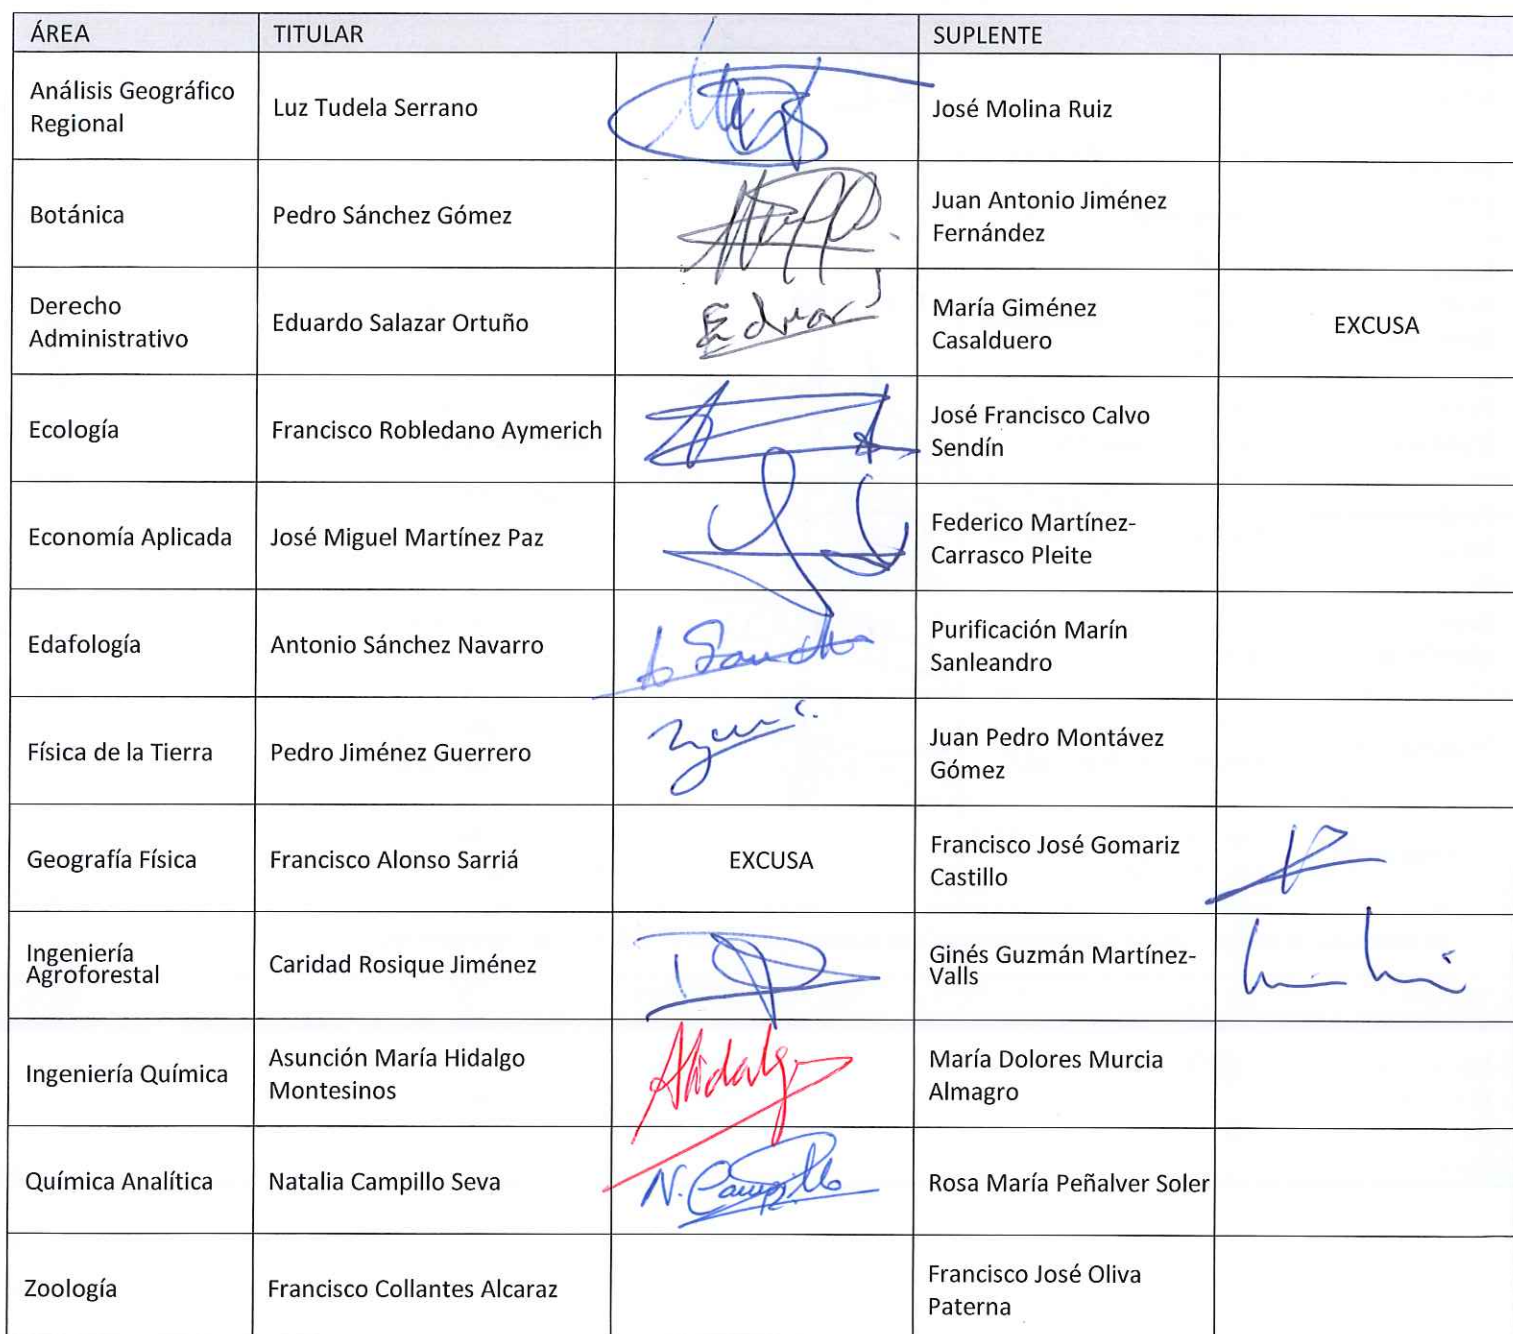 ÁREA TITULAR SUPLENTE
Análisis Geográfico
Regional
Luz Tudela Serrano
José Molina Ruiz
Botánica
Pedro Sánchez Gómez
Juan Antonio Jiménez
Fernández
Derecho
Administrativo
Eduardo Salazar Ortuño
Eduar
María Giménez
Casalduero
EXCUSA
Ecología
Francisco Robledano Aymerich
José Francisco Calvo
Sendín
Economía Aplicada
José Miguel Martínez Paz
Federico Martínez-
Carrasco Pleite
Edafología
Antonio Sánchez Navarro
Purificación Marín
Sanleandro
Física de la Tierra
Pedro Jiménez Guerrero
Juan Pedro Montávez
Gómez
Geografía Física
Francisco Alonso Sarriá
EXCUSA
Francisco José Gomariz
Castillo
Ingeniería
Agroforestal
Caridad Rosique Jiménez
Ginés Guzmán Martínez-
Valls
Ingeniería Química
Asunción María Hidalgo
Montesinos
AHidalgo
María Dolores Murcia
Almagro
Química Analítica
Natalia Campillo Seva
N. Campillo
Rosa María Peñalver Soler
Zoología
Francisco Collantes Alcaraz
Francisco José Oliva
Paterna